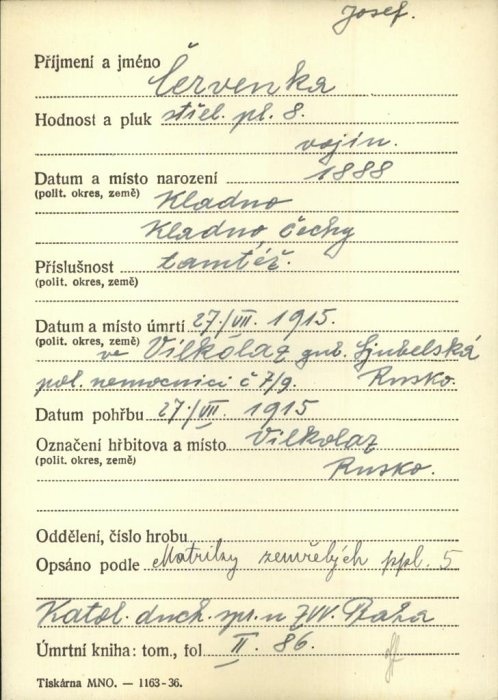 Josef.
Příjmení a jméno Červenka
Hodnost a pluk střel. pl. 8.
vojín.
Datum a místo narození 1888
(polit. okres, země) Kladno
Kladno, Čechy
Příslušnost tamtéž.
(polit. okres, země)
Datum a místo úmrtí 27./VII. 1915.
(polit. okres, země) ve Vilkólaz gub. Ljubelská
pol. nemocnici č 7/9. Rusko.
Datum pohřbu 27./VII. 1915
Označení hřbitova a místo Vilkolaz
(polit. okres, země) Rusko.
Oddělení, číslo hrobu
Opsáno podle Matriky zemřelých ppl. 5
Katol. duch. spr. u ZVV. Praha
Úmrtní kniha: tom., fol II. 86.
Tiskárna MNO. — 1163-36.